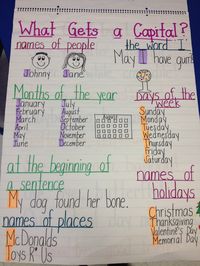 What Gets a Capital?
names of people
the word I
Johnny Jane
May I have gum?
Months of the year
Days of the week
January July
February August
March September
April October
May November
June December
August
Sunday
Monday
Tuesday
Wednesday
Thursday
Friday
Saturday
at the beginning of
a sentence
My dog found her bone.
names of holidays
names of places
McDonalds
Toys R' Us
Christmas
Thanksgiving
Valentine's Day
Memorial Day